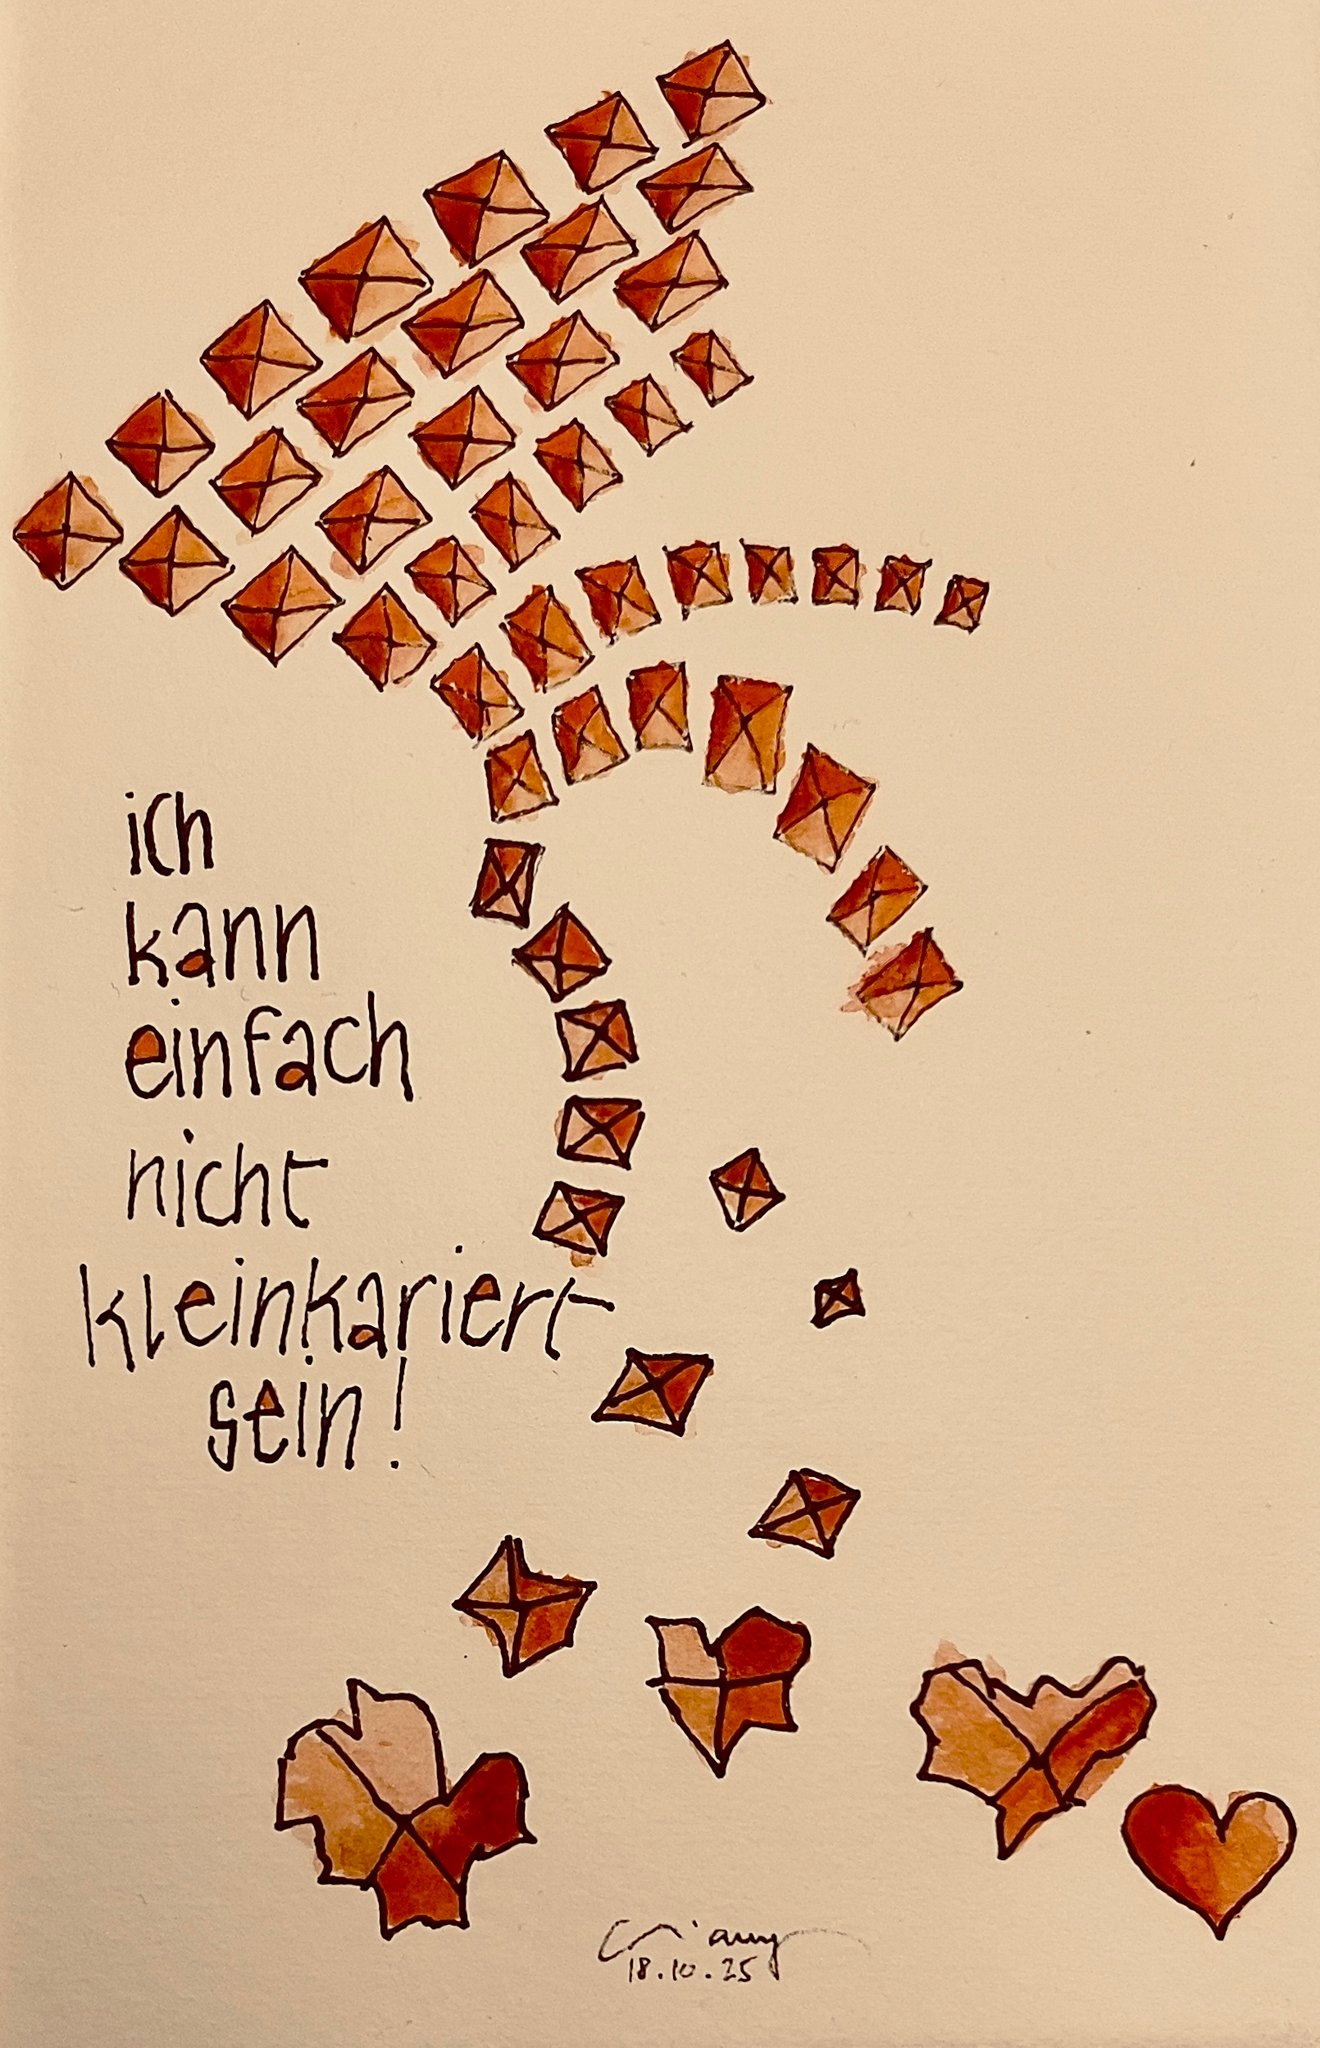 ich
kann
einfach
nicht
kleinkariert
sein!
18.10.25